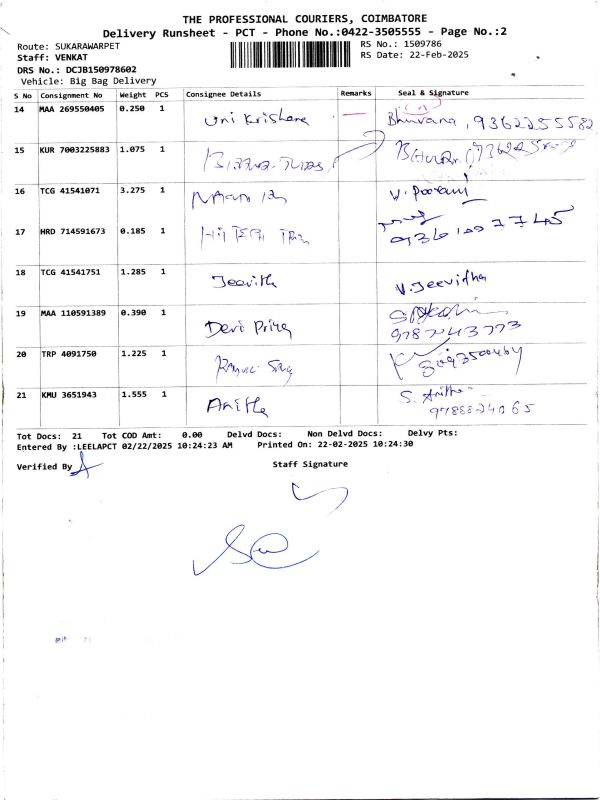 THE PROFESSIONAL COURIERS, COIMBATORE
Delivery Runsheet - PCT - Phone No.:0422-3505555 - Page No.:2
Route: SUKARAWARPET
RS No.: 1509786
Staff: VENKAT
RS Date: 22-Feb-2025
DRS No.: DCJB150978602
Vehicle: Big Bag Delivery
S No Consignment No Weight PCS Consignee Details Remarks Seal & Signature
14 MAA 269550405 0.250 1 Uni Krishana Bhuvana, 9362255582
15 KUR 7003225883 1.075 1
16 TCG 41541071 3.275 1 V. Poorani
17 HRD 714591673 0.185 1
18 TCG 41541751 1.285 1 Jeevitha V. Jeevidha
19 MAA 110591389 0.390 1 Devi Priya 9787243773
20 TRP 4091750 1.225 1
21 KMU 3651943 1.555 1 Anitha S. Anitha
Tot Docs: 21 Tot COD Amt: 0.00 Delvd Docs: Non Delvd Docs: Delvy Pts:
Entered By :LEELAPCT 02/22/2025 10:24:23 AM Printed On: 22-02-2025 10:24:30
Verified By
Staff Signature